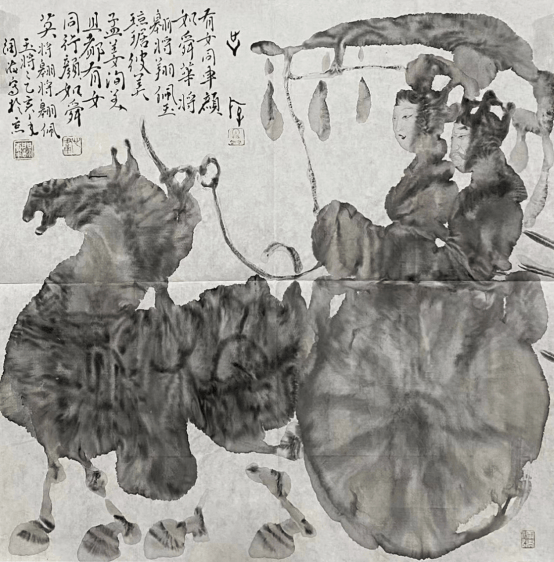 有女同車顏
如舜華將
翱將翔佩玉
瓊琚彼美
孟姜洵美
且都有女
同行顏如舜
英將翱將翔佩
玉將乙亥
寫於京